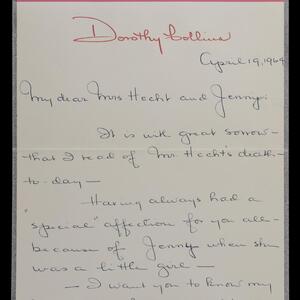 Dorothy Collins
April 19, 1964
My dear Mrs Hecht and Jenny:
It is with great sorrow -
that I read of Mr. Hecht's death
to-day -
Having always had a
"special" affection for you all -
because of Jenny when she
was a little girl -
- I want you to know my